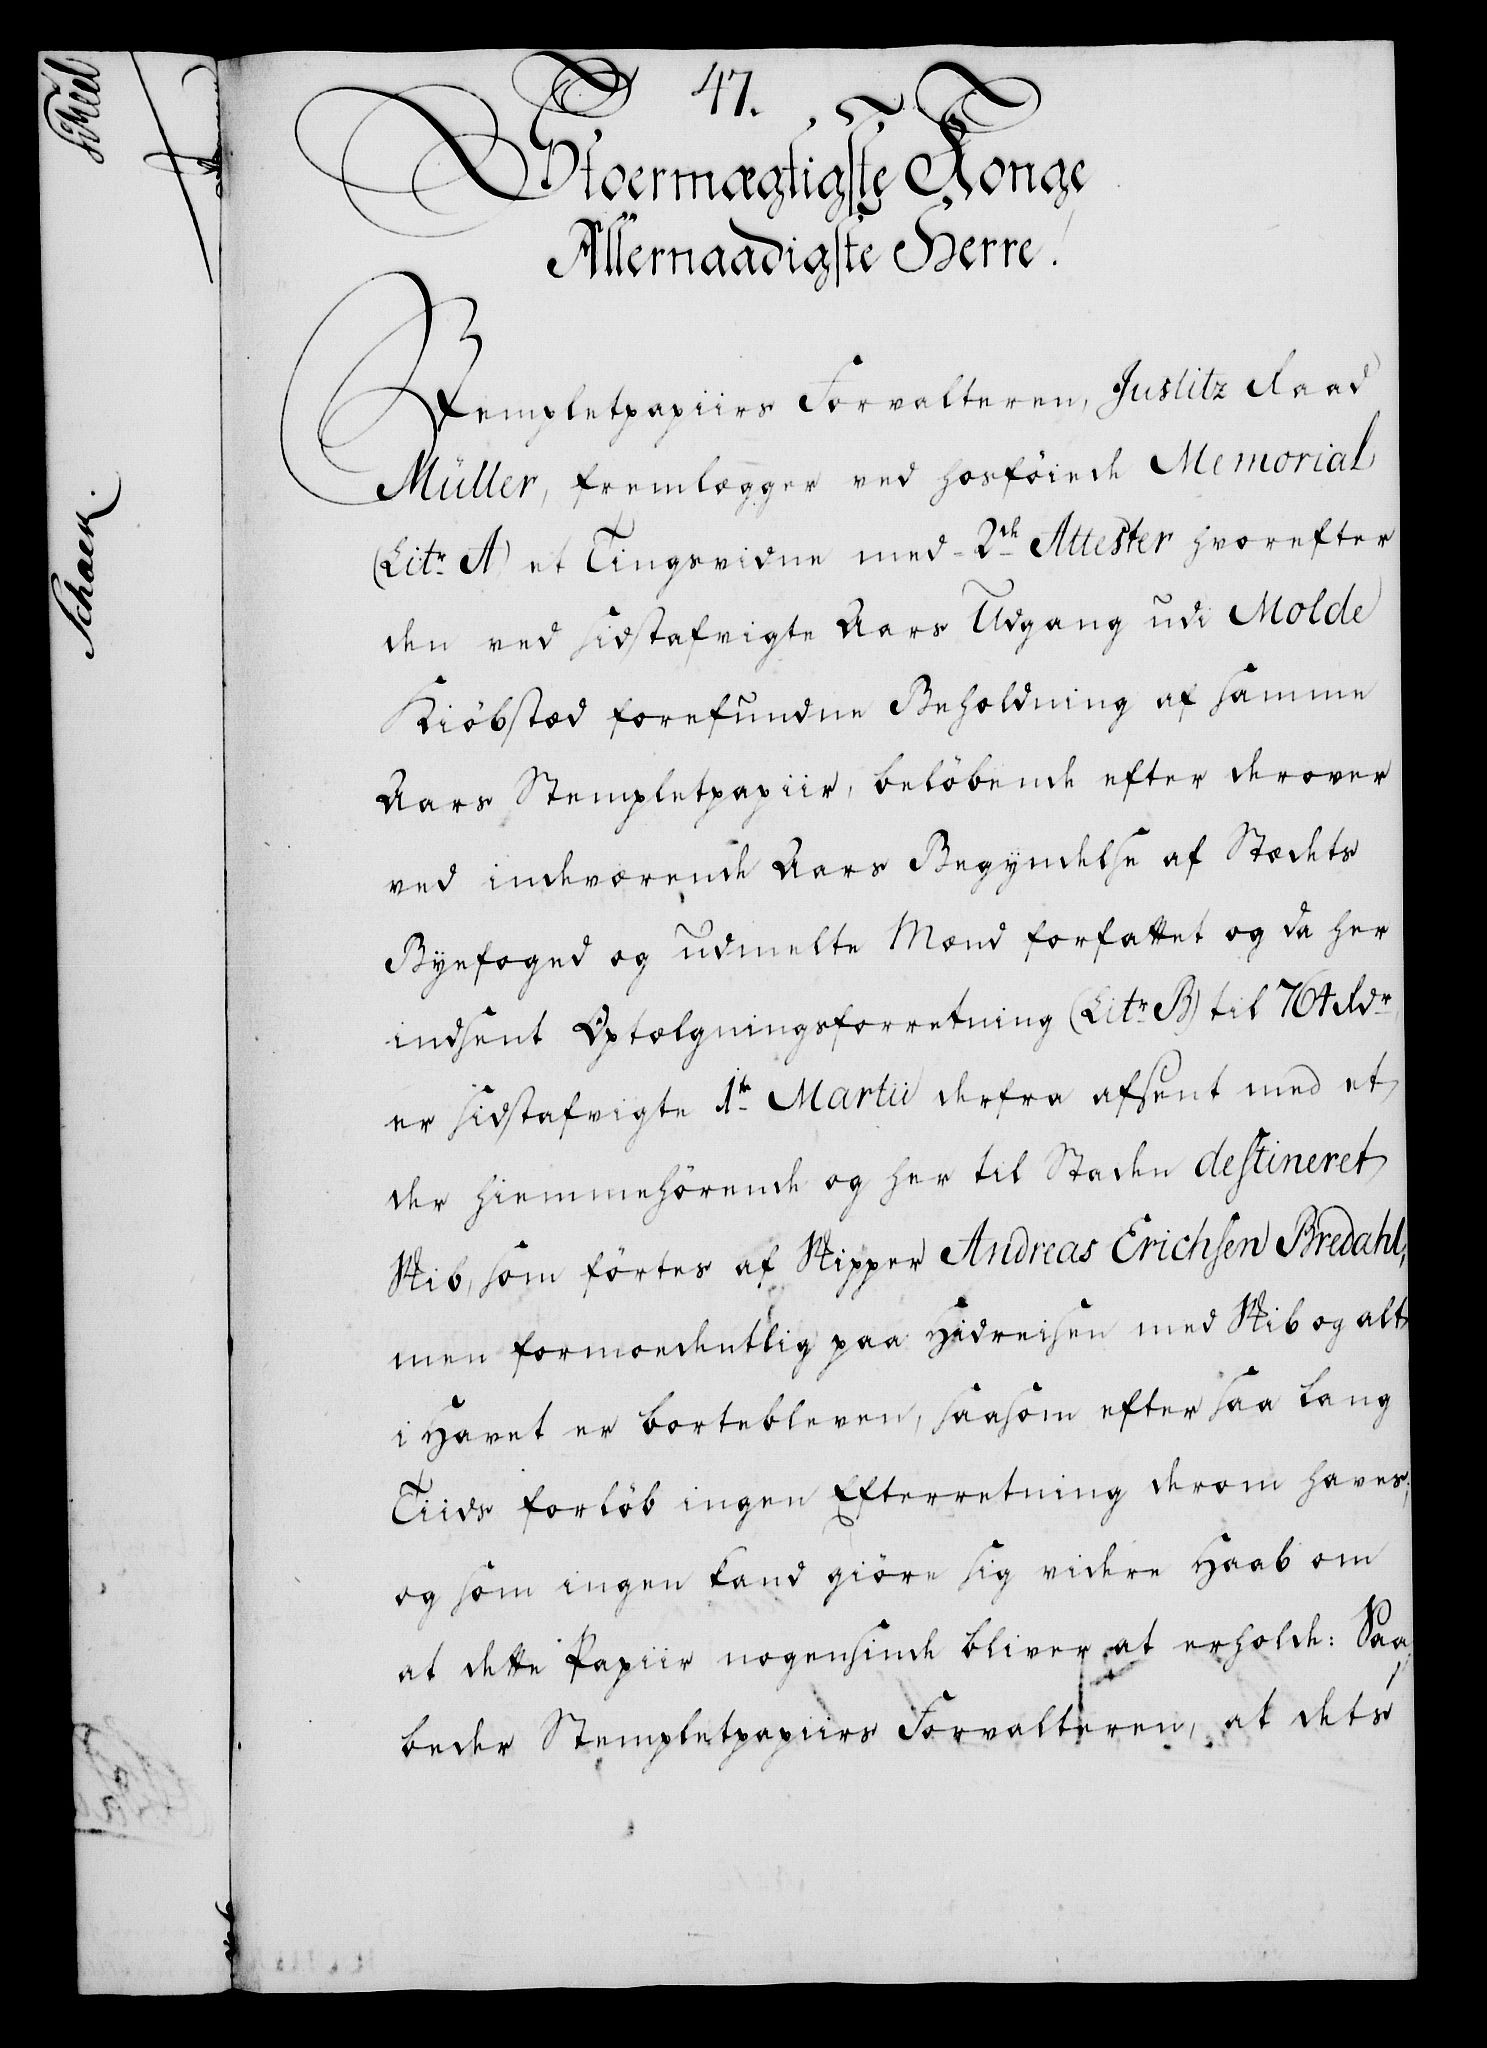 47.
Stoermægtigste Konge
Allernaadigste Herre!
Stempletpapiirs Forvalteren, Justitz Raad
Müller, fremlægger ved hosföiede Memorial
(Litr A) et Tingsvidne med 2de Attester hvorefter
den ved sidstafvigte Aars Udgang udi Molde
Kiöbstæd forefundne Beholdning af samme
Aars Stempletpapiir, belöbende efter derover
ved indeværende Aars Begyndelse af Stædets
Byefoged og udmelte Mænd forfattet og da her
indsent Optælgningsforretning (Litr B) til 764 Rdr,
er sidstafvigte 1te Martii derfra afsent med et
der hiemmehörende og her til Staden destineret
Skib, som förtes af Skipper Andreas Erichsen Bredahl,
men formoedentlig paa Hidreisen med Skib og alt
i Havet er bortebleven, saasom efter saa lang
Tiids forlöb ingen Efterretning derom haves;
og som ingen kand giöre sig videre Haab om
at dette Papiir nogensinde bliver at erholde: Saa
beder Stempletpapiirs Forvalteren, at dets
Scheel
Schaer.